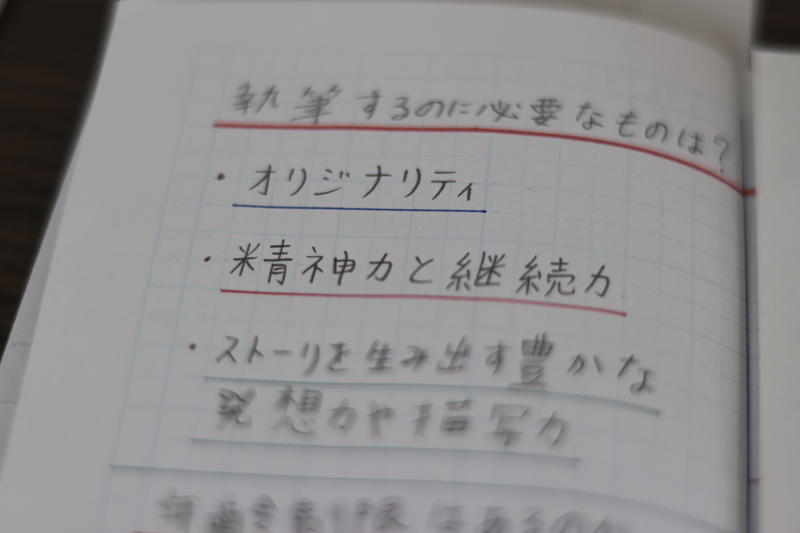 執筆するのに必要なものは?
・オリジナリティ
・精神力と継続力
・ストーリを生み出す豊かな
発想力や描写力